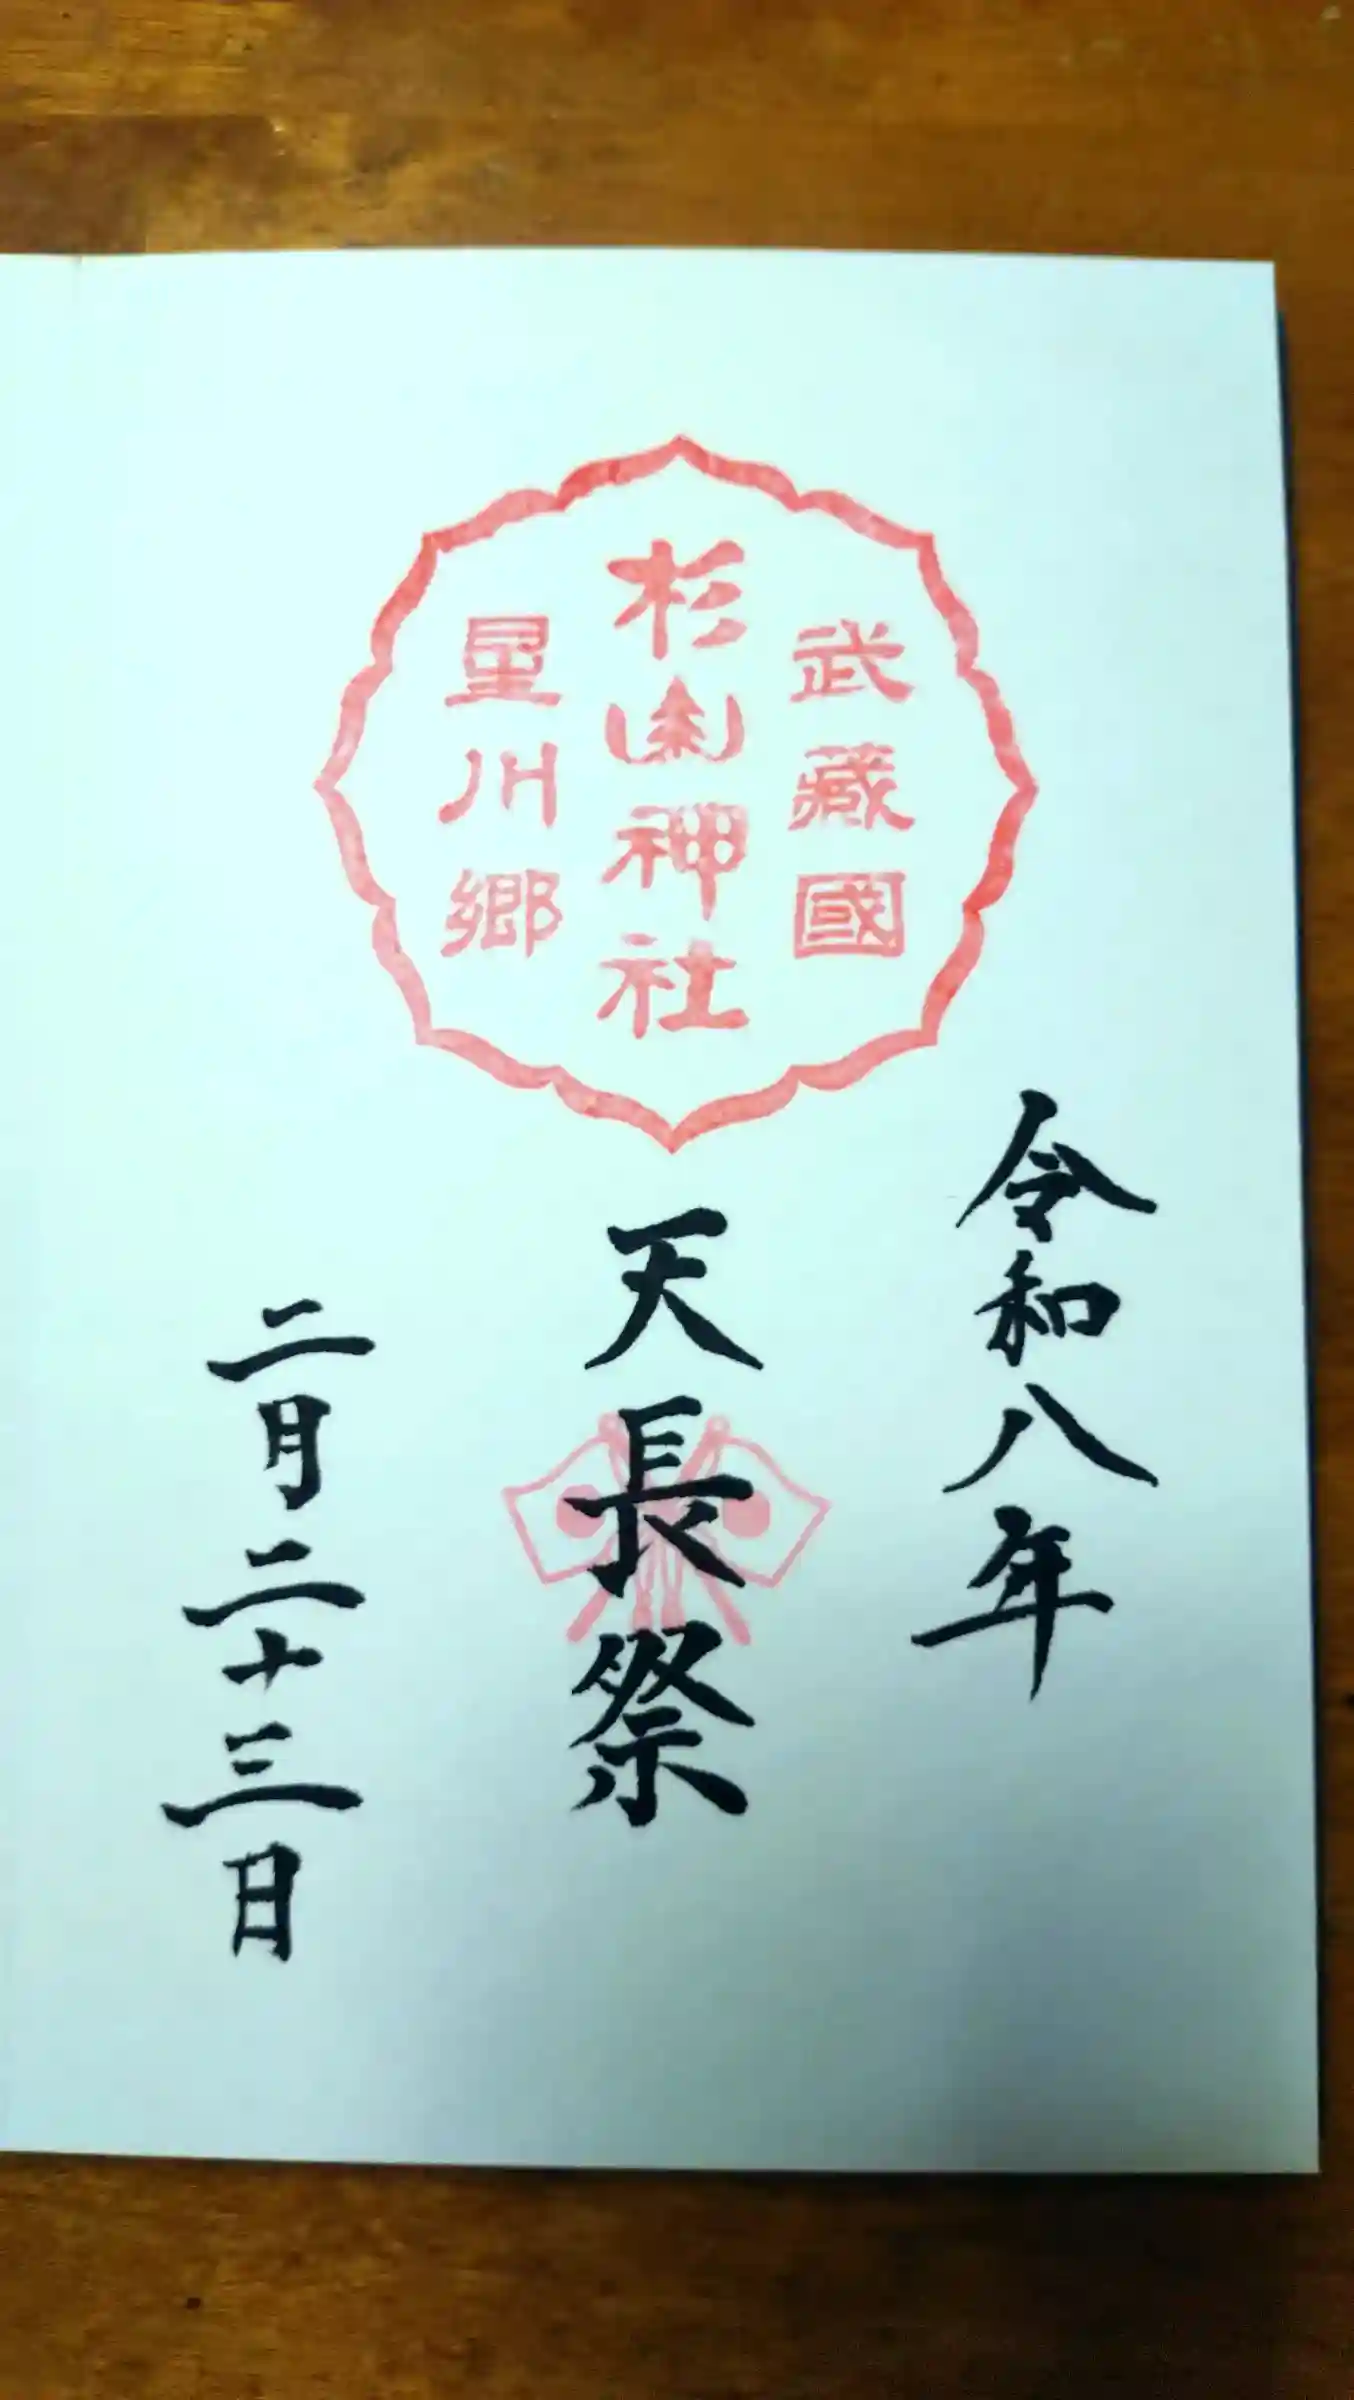 武藏國
杉山神社
星川郷
令和八年
天長祭
二月二十三日